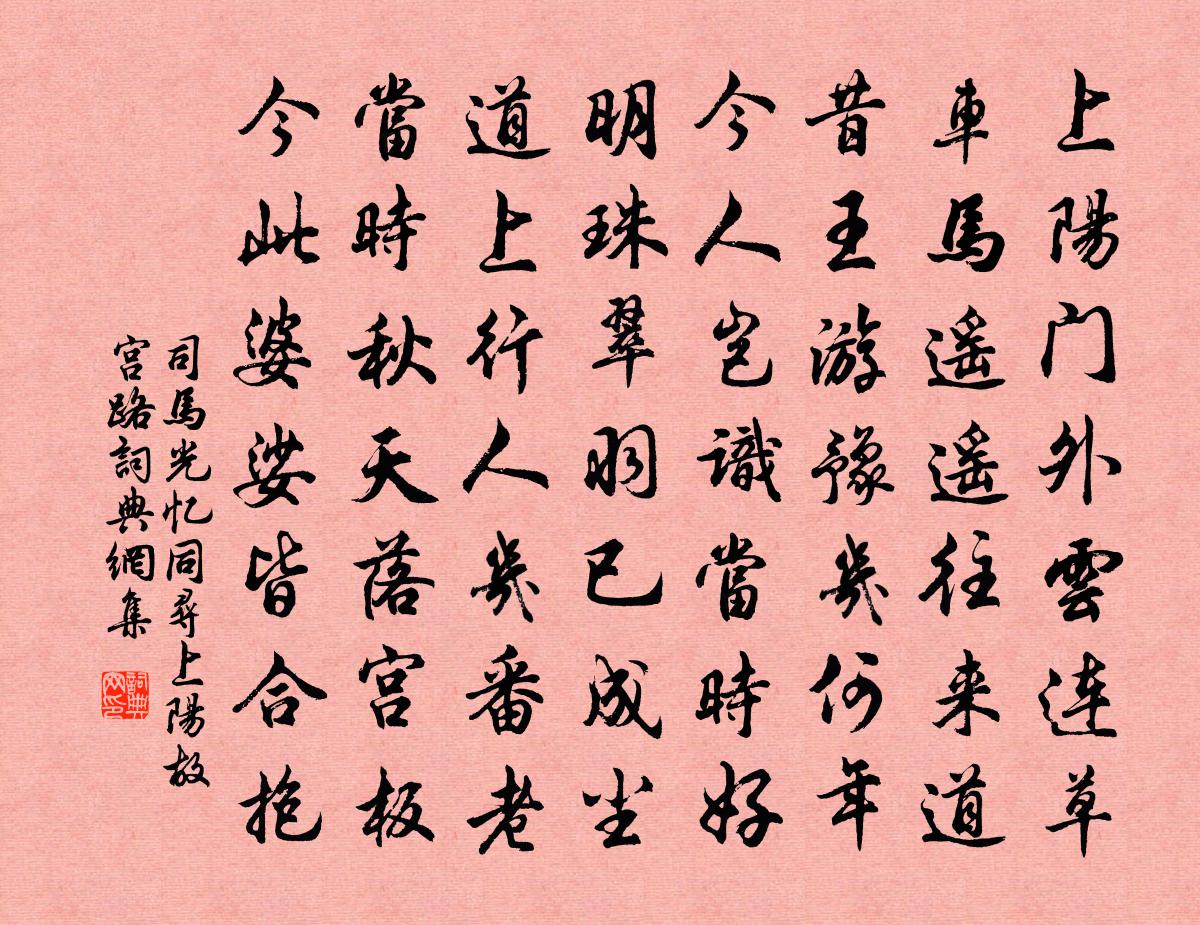 上陽门外雲连草
車馬遥遥往来道
昔王游豫幾何年
今人岂識當時好
明珠翠羽已成尘
道上行人幾番老
當時秋天落宫板
今此婆娑皆合抱
司馬光忆同尋上陽故
宫路詞典網集
詞典网印